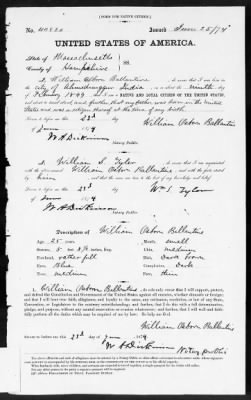 [FORM FOR NATIVE CITIZEN.]
No. Issued June 25/74
UNITED STATES OF AMERICA.
State of Massachusetts
County of Hampshire } ss.
I, William Osborn Ballantine do swear that I was born in the
city of India on or about the ninth day
of 1849; that I am a NATIVE AND LOYAL CITIZEN OF THE UNITED STATES,
and about to travel abroad; and further that my father was born in the United
States and was a citizen thereof at the time of my birth.
William Osborn Ballantine
Sworn to before me, this 23d day
of June 1874
W. H. Dickinson
Notary Public.
I, William S. Tyler do swear that I am acquainted
with the above-named William Osborn Ballantine and with the facts above stated by
him and that the same are true to the best of my knowledge and belief.
Sworn to before me, this 23d day
Wm S. Tyler
of June 1874
W H Dickinson
Notary Public.
Description of William Osborn Ballantine
Age: 25 years.
Stature: 5 feet inches, Eng.
Forehead: rather full
Eyes: Blue
Nose: medium
Mouth: small
Chin: medium
Hair: Dark brown
Complexion: Dark
Face: thin
I, William Osborn Ballantine, do solemnly swear that I will support, protect,
and defend the Constitution and Government of the United States against all enemies, whether domestic or foreign;
and that I will bear true faith, allegiance, and loyalty to the same, any ordinance, resolution, or law of any State,
Convention, or Legislature to the contrary notwithstanding; and further, that I do this with a full determination,
pledge, and purpose, without any mental reservation or evasion whatsoever; and further, that I will well and faith-
fully perform all the duties which may be required of me by law. So help me God.
William Osborn Ballantine
Sworn to before me, this 23d day
of June 1874
W H Dickinson
Notary public